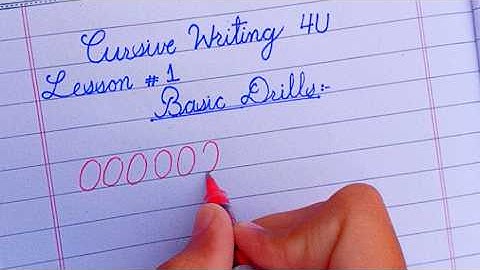 Cursive Writing 4U
Lesson #1
Basic Drills:-
OOOOO